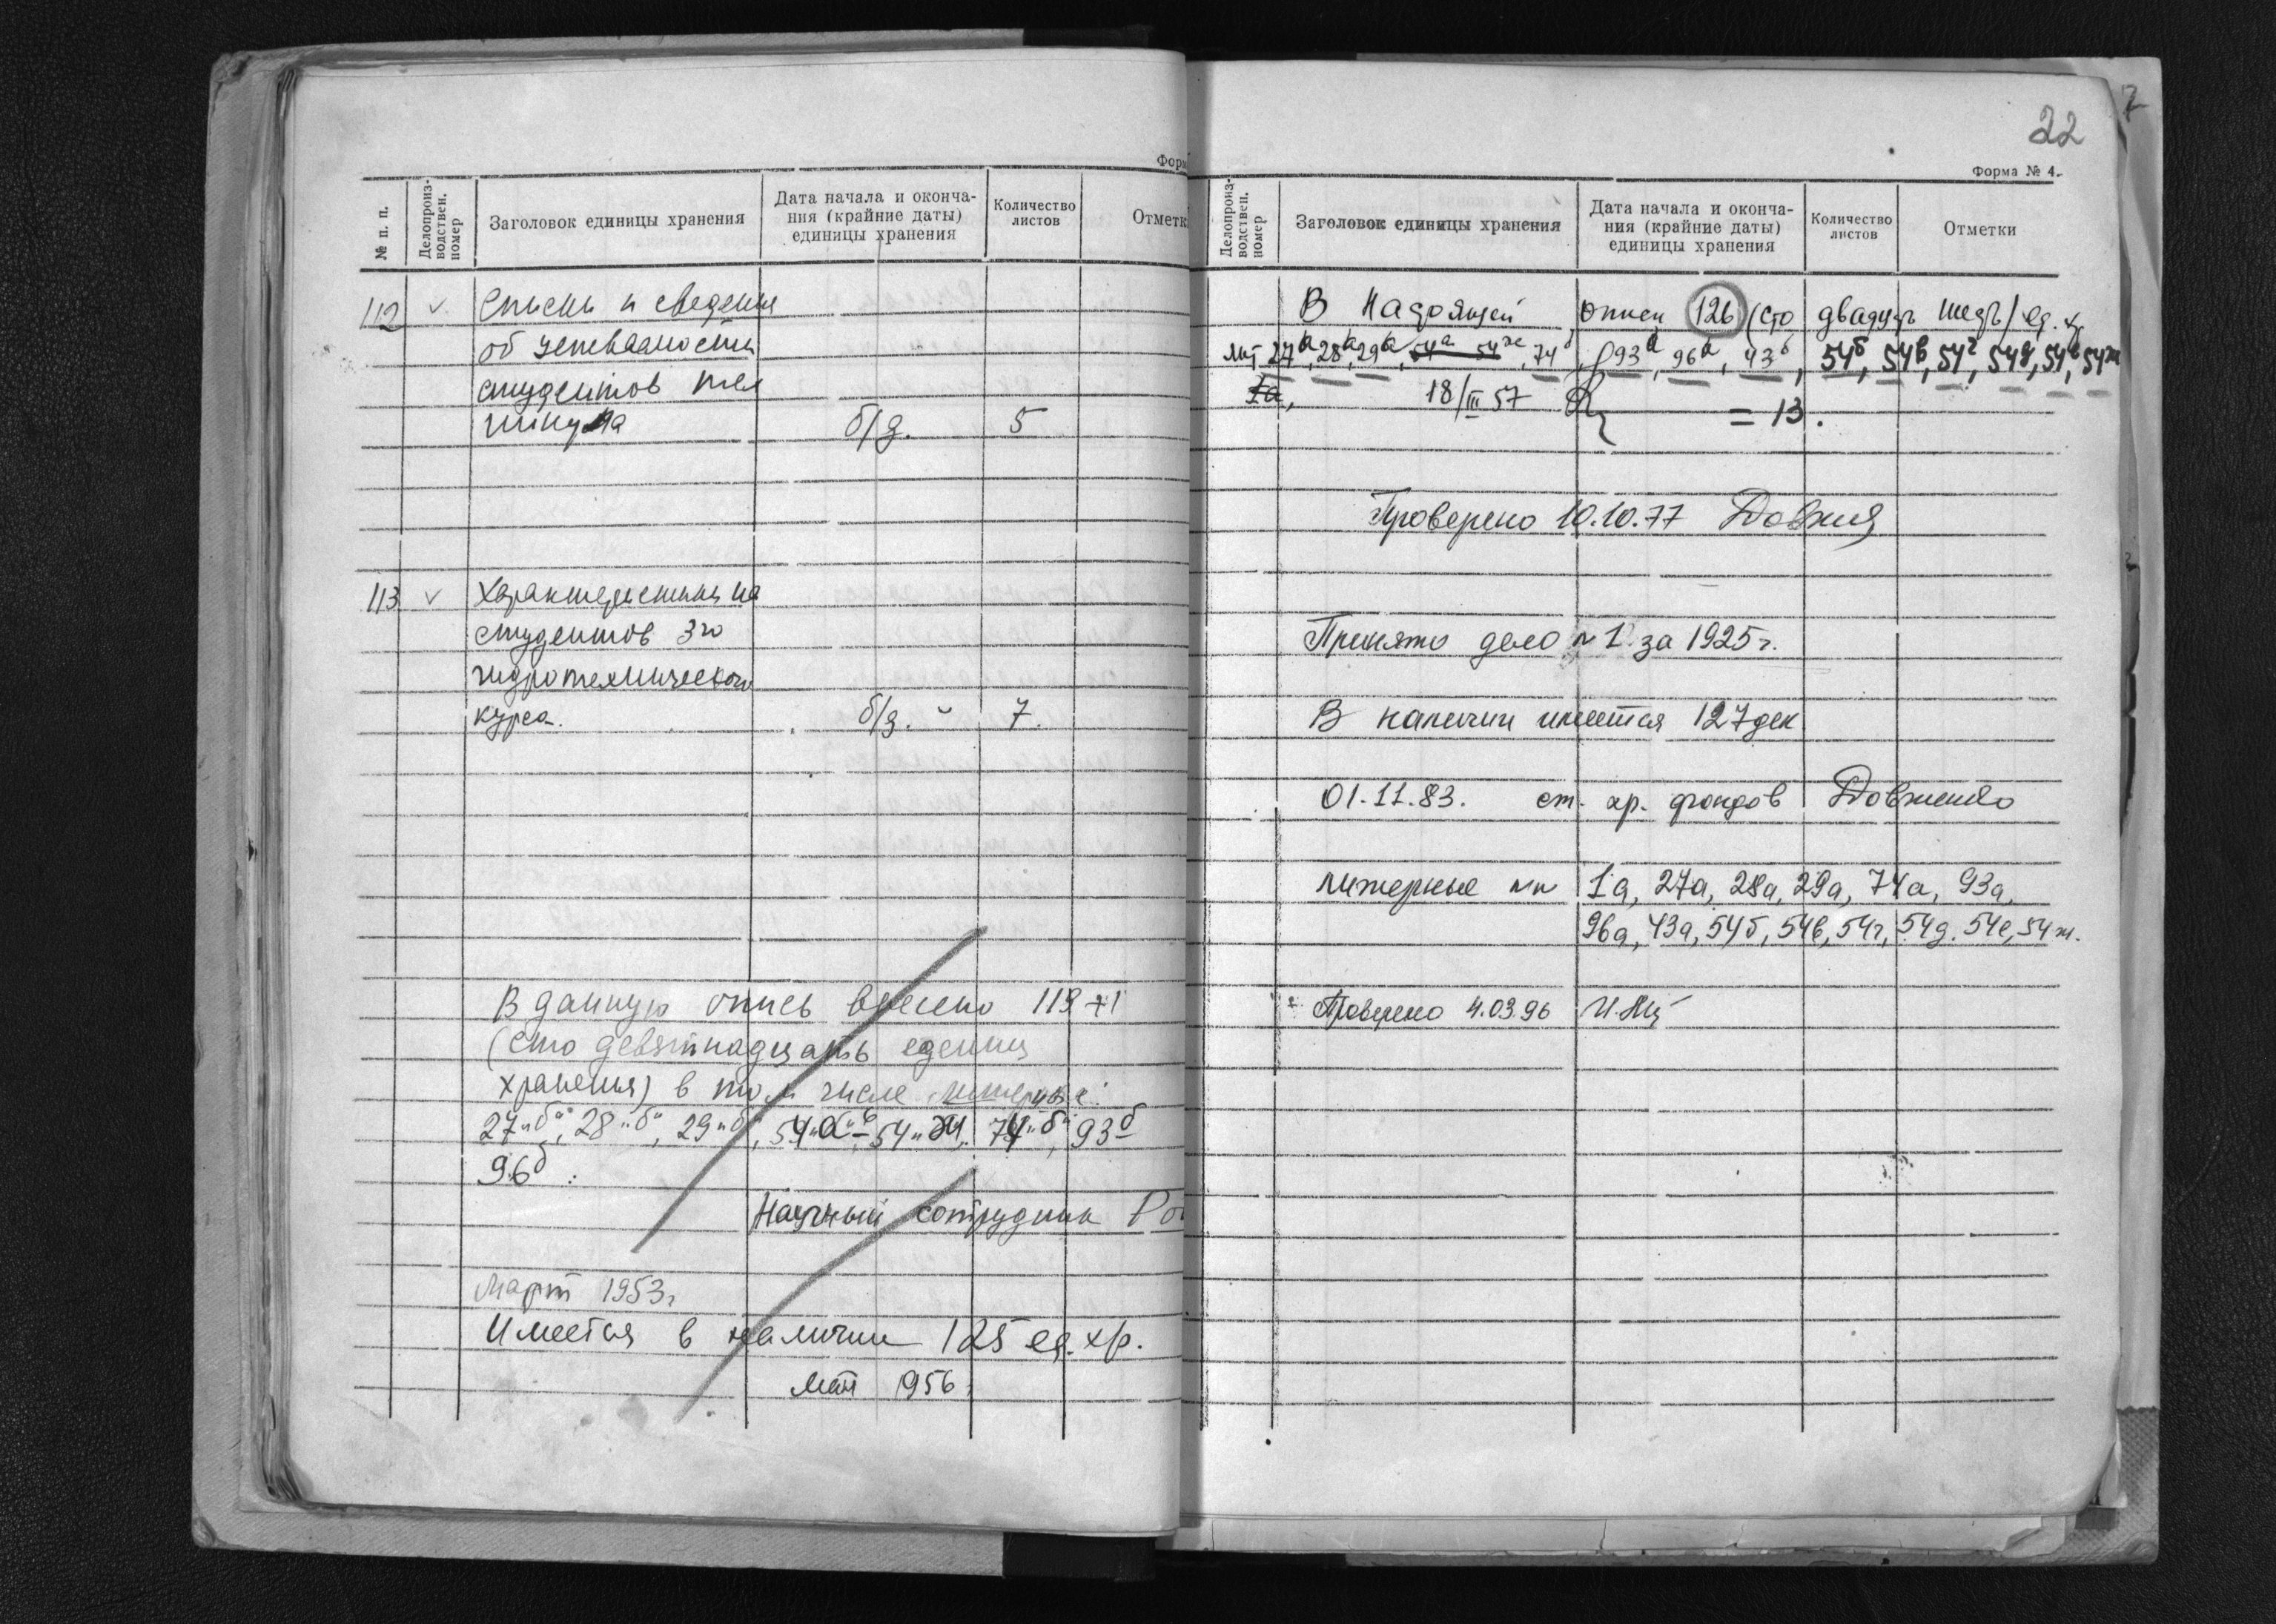 Форм
№ п. п.
Делопроиз-
водствен.
номер
Заголовок единицы хранения
Дата начала и оконча-
ния (крайние даты)
единицы хранения
Количество
листов
Отметк
112 ✓ Списки и сведения
об успеваемости
студентов тех
никума б/д. 5
113 ✓ Характеристики на
студентов 3го
гидротехнического
курса. б/д. 7.
В данную опись внесено 119 +1
(сто девятнадцать единиц
хранения) в том числе литерные:
27"б", 28"б", 29"б", 54"а"-54"ж", 74"б", 93б
96б.
Научный сотрудник
Март 1953г
Имеется в наличии 125 ед. хр.
Май 1956
22
Форма № 4.
Делопроиз-
водствен.
номер
Заголовок единицы хранения
Дата начала и оконча-
ния (крайние даты)
единицы хранения
Количество
листов
Отметки
В настоящей описи 126 (сто двадцать шесть) ед. х
Лит 27а, 28а, 29а, 54а 54ж, 74б, 93а, 96а, 43б, 54б, 54в, 54г, 54д, 54е, 54ж
1а, 18/III 57 = 13.
Проверено 10.10.77
Принято дело № 1 за 1925г.
В наличии имеется 127 дел
01.11.83. ст. хр. фондов Довженко
литерные №№ 1а, 27а, 28а, 29а, 74а, 93а,
96а, 43а, 54б, 54в, 54г, 54д. 54е, 54ж.
Проверено 4.03.96